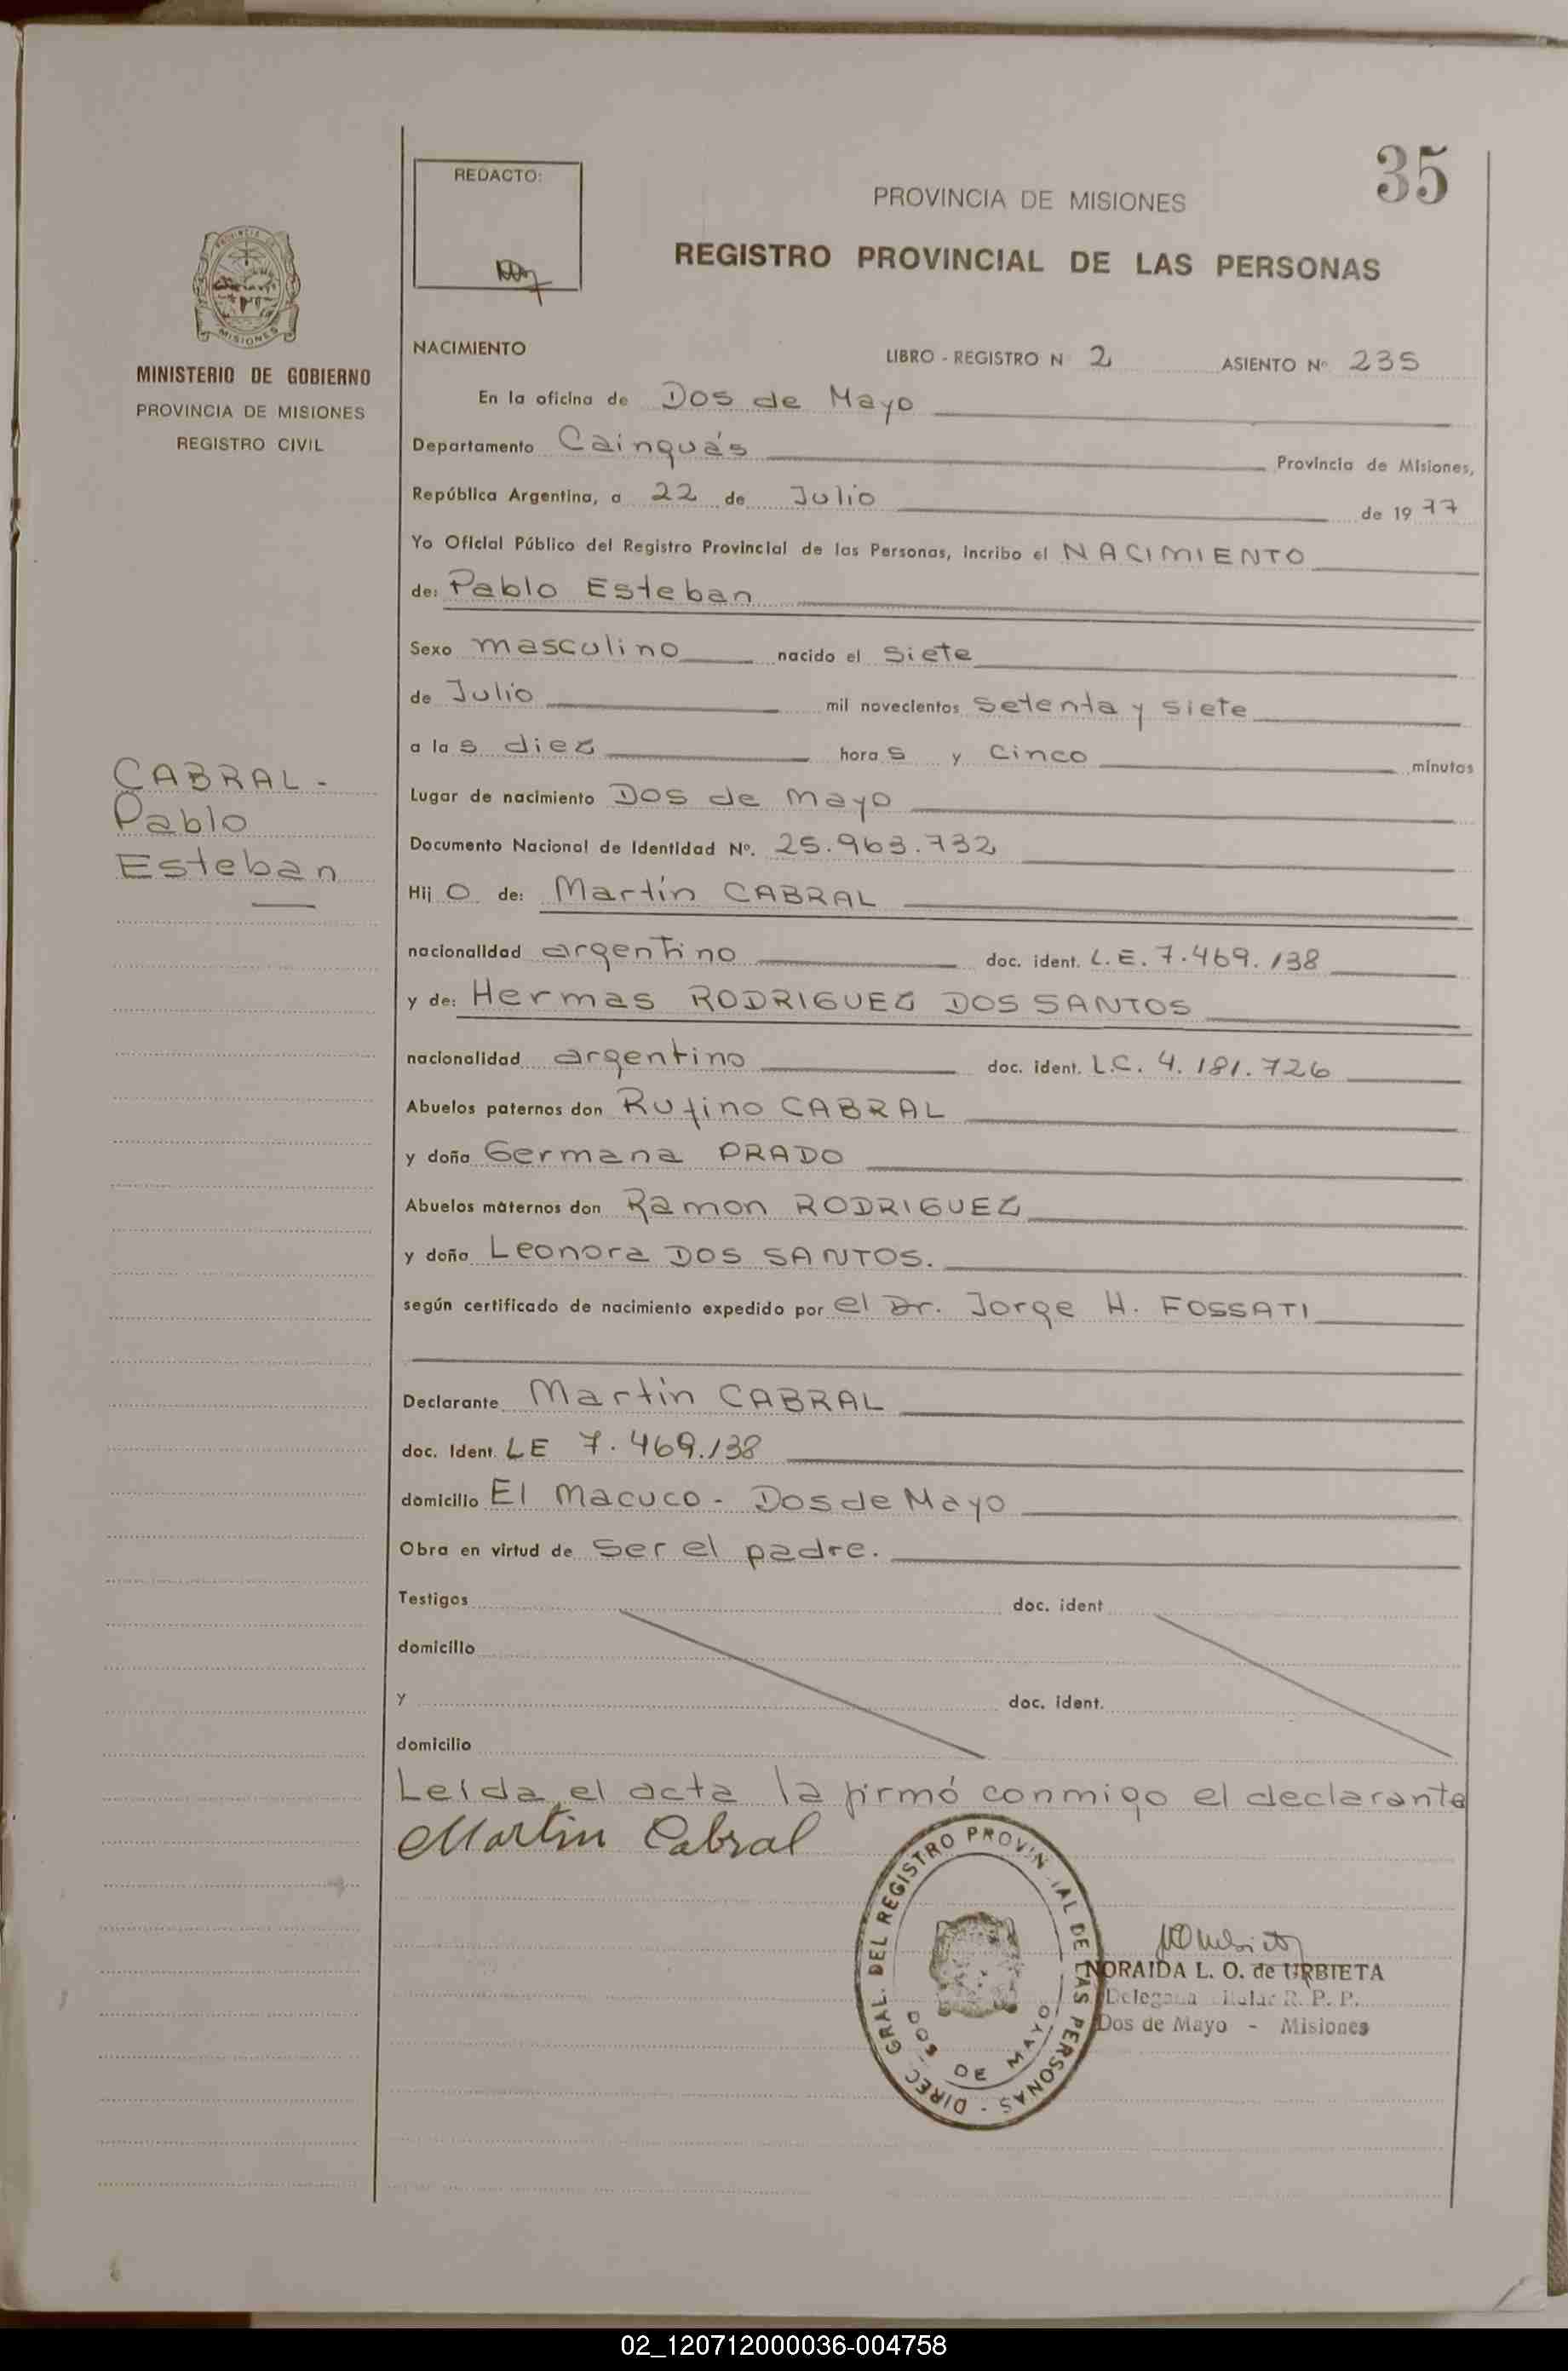 35
REDACTO:
PROVINCIA DE MISIONES
REGISTRO PROVINCIAL DE LAS PERSONAS
PROVINCIA DE
MISIONES
MINISTERIO DE GOBIERNO
PROVINCIA DE MISIONES
REGISTRO CIVIL
CABRAL -
Pablo
Esteban
NACIMIENTO LIBRO - REGISTRO N 2 ASIENTO Nº 235
En la oficina de Dos de Mayo
Departamento Cainguás Provincia de Misiones,
República Argentina, a 22 de Julio de 1977
Yo Oficial Público del Registro Provincial de las Personas, incribo el NACIMIENTO
de: Pablo Esteban
Sexo masculino nacido el siete
de Julio mil novecientos setenta y siete
a las diez horas y cinco minutos
Lugar de nacimiento Dos de Mayo
Documento Nacional de Identidad Nº. 25.963.732
Hijo de: Martín CABRAL
nacionalidad argentino doc. ident. L.E. 7.469.138
y de: Hermas RODRIGUEZ DOS SANTOS
nacionalidad argentino doc. ident. L.C. 4.181.726
Abuelos paternos don Rufino CABRAL
y doña Germana PRADO
Abuelos maternos don Ramon RODRIGUEZ
y doña Leonora DOS SANTOS.
según certificado de nacimiento expedido por el Dr. Jorge H. FOSSATI
Declarante Martín CABRAL
doc. Ident. LE 7.469.138
domicilio El Macuco - Dos de Mayo
Obra en virtud de ser el padre.
Testigos doc. ident
domicilio
y doc. ident.
domicilio
Leída el acta la firmó conmigo el declarante
Martin Cabral
DIREC. GRAL. DEL REGISTRO PROVINCIAL DE LAS PERSONAS -
DOS DE MAYO
NORAIDA L. O. de URBIETA
Delegada Titular R. P. P.
Dos de Mayo - Misiones
02_120712000036-004758